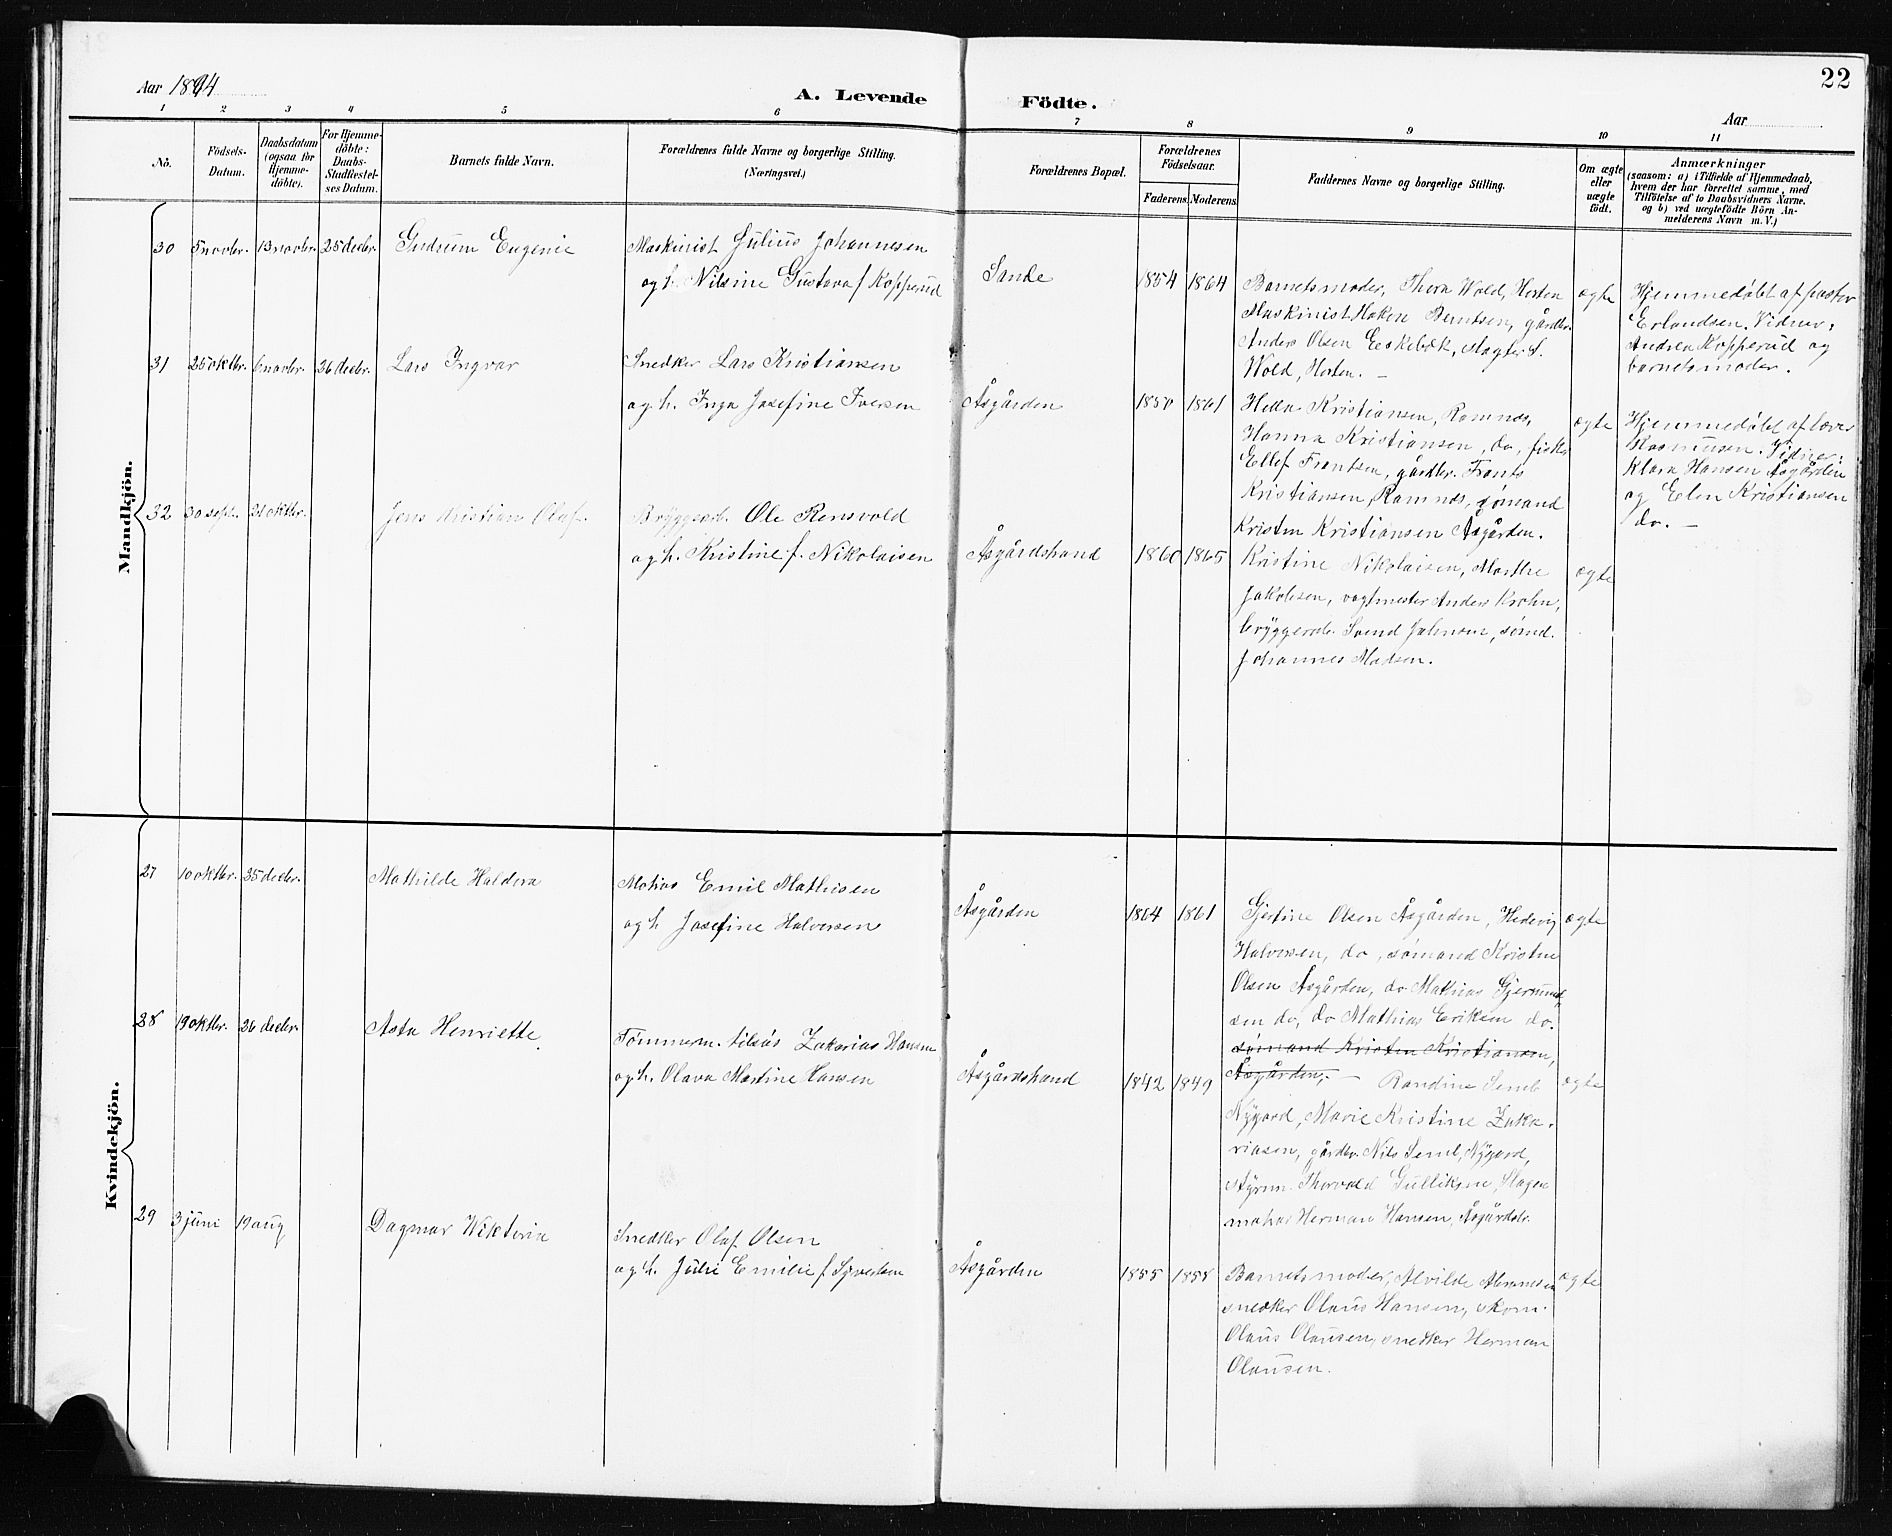 22
Aar 1894
A. Levende Födte.
Aar
1 2 3 4 5 6 7 8 9 10 11
No.
Födsels-Datum.
Daabsdatum (ogsaa for Hjemme-döbte).
For Hjemme-döbte: Daabs-Stadfæstel-ses Datum.
Barnets fulde Navn.
Forældrenes fulde Navne og borgerlige Stilling.
(Næringsvei.)
Forældrenes Bopæl.
Forældrenes Födselsaar.
Faderens Moderens
Faddernes Navne og borgerlige Stilling.
Om ægte eller uægte födt.
Anmærkninger
(saasom: a) i Tilfælde af Hjemmedaab,
hvem der har forrettet samme, med
Tilföielse af to Daabsvidners Navne.
og b) ved uægtefödte Börn An-
melderens Navn m. V.)
Mandkjön.
30 5 novbr. 13 novbr. 25 decbr. Gudrum Eugenie
Maskinist Julius Johannesen
og h. Nilsine Gustava f Kopperud
Sande 1854 1864
Barnets moder, Thora Wold, Horten
Maskinist Haken Berntsen, gårdbr.
Anders Olsen Eskebæk, slagter S.
Wold, Horten. –
ægte
Hjemmedøbt af pastor
Erlandsen. Vidner:
Andrea Kopperud og
barnets moder.
31 25 oktbr. 6 novbr. 26 decbr. Lars Ingvar
Snedker Lars Kristiansen
og h. Inga Josefine Iversen
Åsgården 1850 1861
Kristiansen, Ramnæs,
Hanna Kristiansen, do, fisker
Ellef Frantsen, gårdbr. Frants
Kristiansen, Ramnæs, sømand
Kristen Kristiansen Åsgården.
ægte
Hjemmedøbt af lærer
Rasmussen. Vidner:
Klara Hansen Åsgården
og Elen Kristiansen
do. –
32 30 sept. 21 oktbr. Jens Kristian Olaf.
Bryggearb. Ole Rensvold
og h. Kristine f. Nikolaisen
Åsgårdstrand 1860 1865
Kristine Nikolaisen, Marthe
Jakobsen, vagtmester Anders Krohn,
bryggearb. Svend Johnson, sømd.
Johannes Madsen.
ægte
Kvindekjön.
27 10 oktbr. 25 decbr. Mathilde Haldora
Matias Emil Mathisen
og h Josefine Halvorsen
Åsgården 1864 1861
Gjertine Olsen Åsgården, Hedevig
Halvorsen, do, sømand Kristen
Olsen Åsgården, do Mathias Gjermund-
sen do, do Mathias Eriksen do.
sømand Kristen Kristiansen,
Åsgården,
ægte
28 19 oktbr. 26 decbr. Asta Henriette
Tømmerm. Zakarias Hansen
og h. Olava Martine Hansen
Åsgårdstrand 1842 1849
Randine Semb
Nygård, Marie Kristine Zaka-
riasen, gårdbr. Nils Semb, Nygård,
styrm. Thorvald Gulliksen, Slagen
Herman Hansen, Åsgårdstr.
ægte
29 3 juni 19 aug Dagmar Wiktoria
Snedker Olaf Olsen
og h. Julie Emilie f
Åsgården 1855 1858
Barnets moder, Alvilde
snedker Olaus Hansen, skom.
Olaus Olausen, snedker Herman
Olausen.
ægte